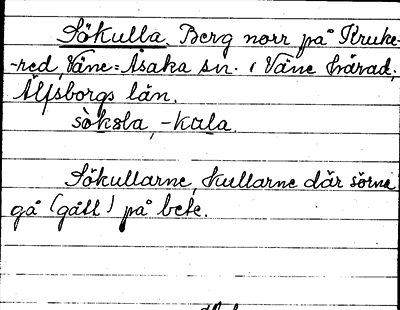 Sökulla. Berg norr på Kruke-
-red, Väne=Åsaka sn. i Väne härad,
Älfsborgs län.
sö̀kɷla, -kala.
Sökullarne, kullarne där sörna
gå (gått) på bete.